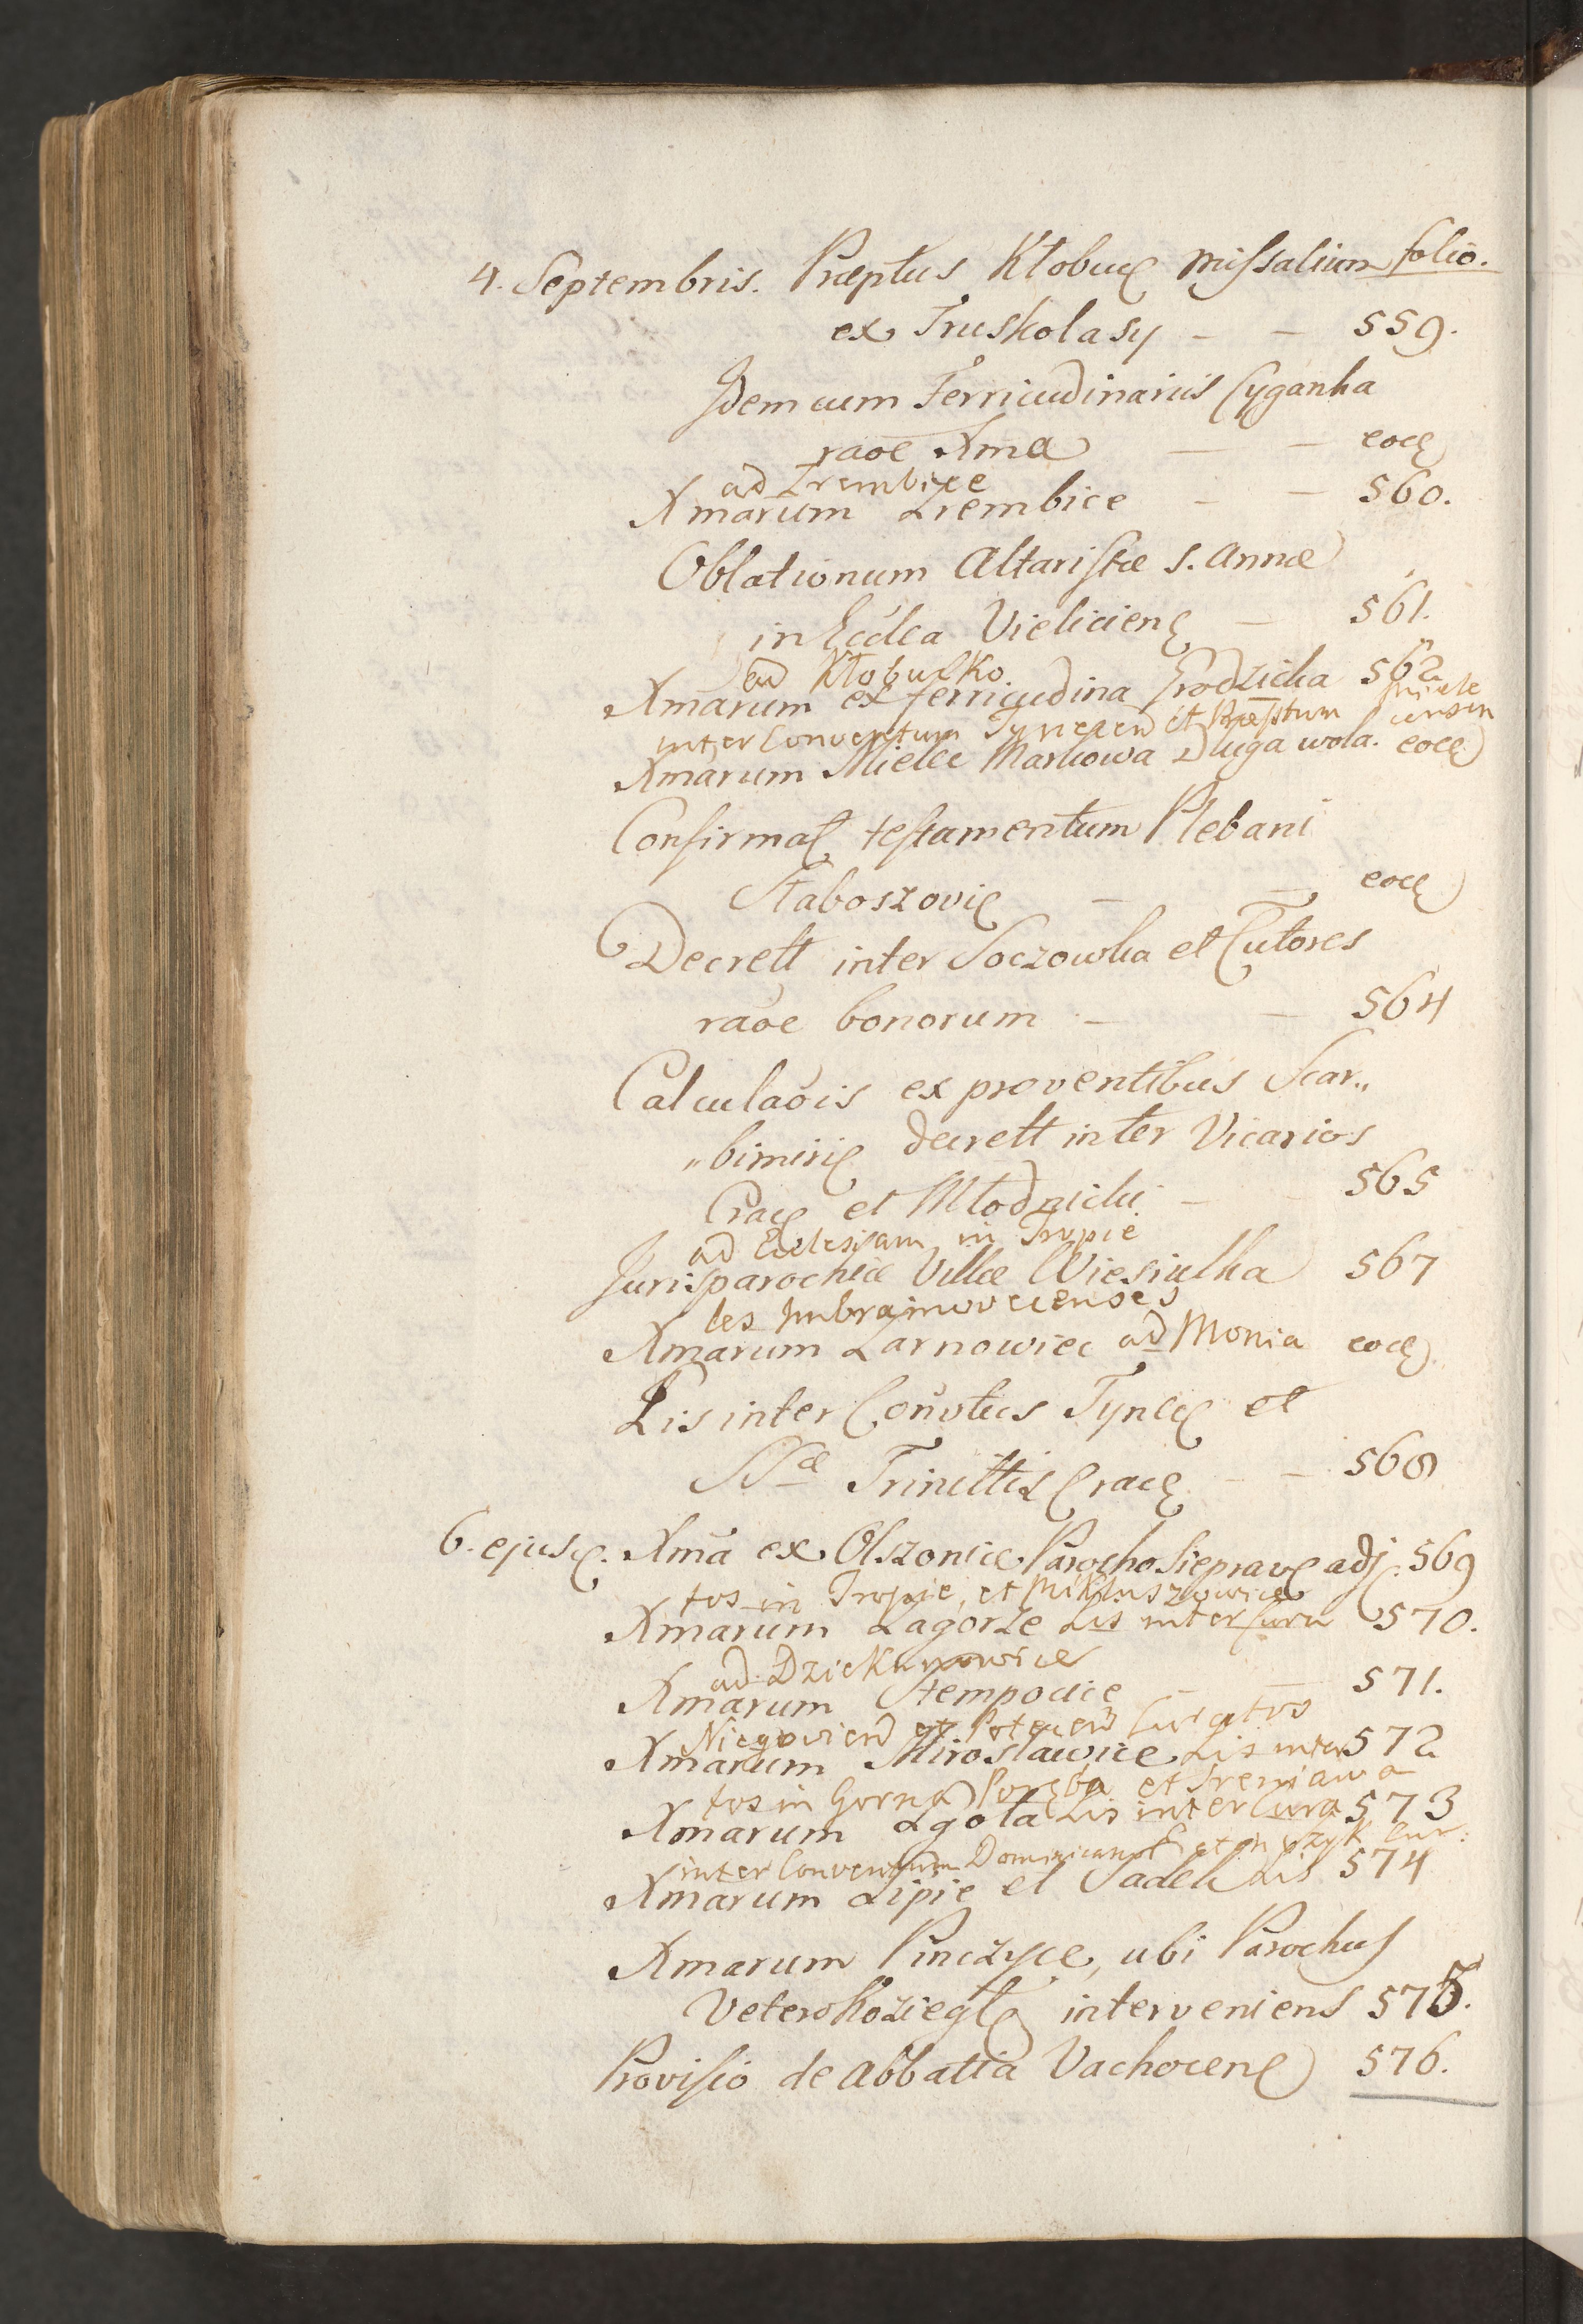 folio.
4. Septembris. Præptus Kłobuc missalium
ex Truskolasy - - 559.
Idem cum Ferricudinariis Cyganka
raõe Xma - - eod
ad Zrembice
Xmarum Zrembice - - 560.
Oblationum Altaristæ S. Annæ
in Eccłca Vieliciens - 561.
ad Kłobucko
Xmarum ex ferricudina Grodzicka 562
inter Conventum Tynecen et Præptum
Xmarum Mielec Markowa Długa wola. eod
Confirmat testamentum Plebani
Słaboszovic - - eod
Decrett inter Soczowka et Tutores
raõe bonorum - - 564
Calculaõis ex proventibus Scar„
„bimiris decrett inter Vicarios
Crac et Młodnicki - - 565
ad Ecclesiam in Tropie
Jurisparochiæ Villæ Wiesiułka 567
les Imbramovicenses
Xmarum Zarnowiec ad Monia eod
Lis inter Conv̄tus Tynec et
SSæ Trinittis Crac - - 568
6. ejusd. Xma ex Olszonice Parocho Sieprav adj. 569
tos in Tropie, et Mikluszowice
Xmarum Zagorze Lis inter Cura 570.
ad Dziekanowice
Xmarum Stempocice - - 571.
Niegowien et Potecen Curatos
Xmarum Mirosławice Lis inter 572
tos in Gorna Poręba et Sreniawa
Xmarum Lgota Lis inter Cura 573
inter Conventum Dominicanor et in
Xmarum Lipie et Sadek Lis 574
Xmarum Pinczyce, ubi Parochus
Veterokoziegł interveniens 575.
Provisio de Abbatia Vachocens 576.